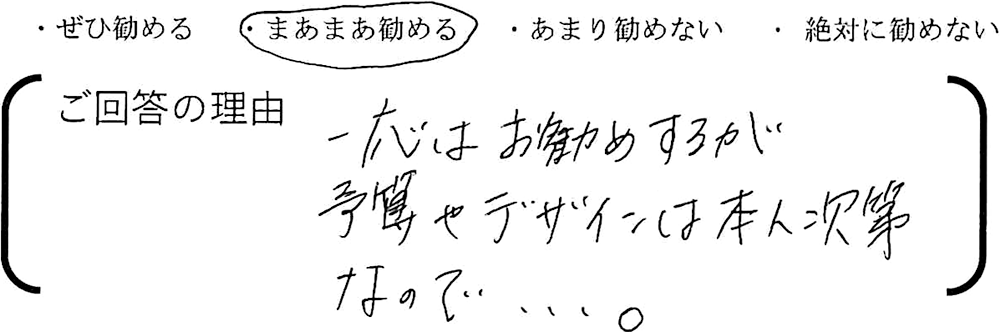 ・ぜひ勧める ・まあまあ勧める ・あまり勧めない ・絶対に勧めない
ご回答の理由
一応はお勧めするが
予算やデザインは本人次第
なので、...。